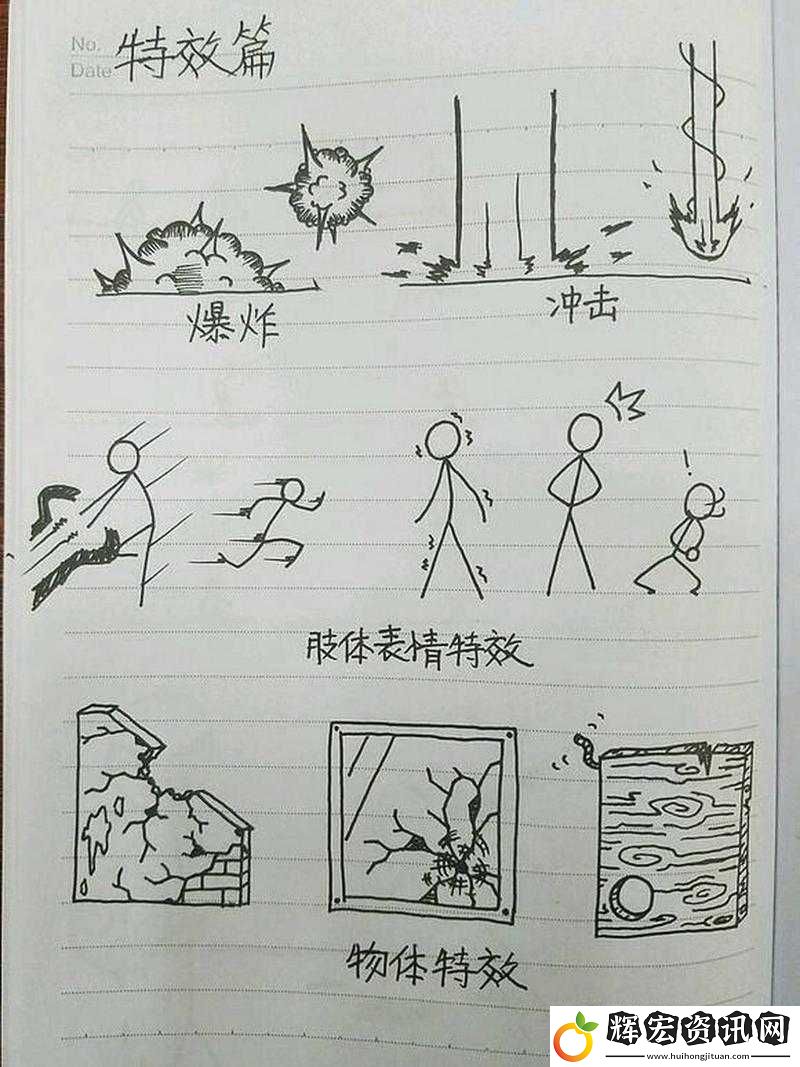 No.
Date
特效篇
爆炸
冲击
!
肢体表情特效
物体特效
辉宏资讯网
www.huihongjituan.com